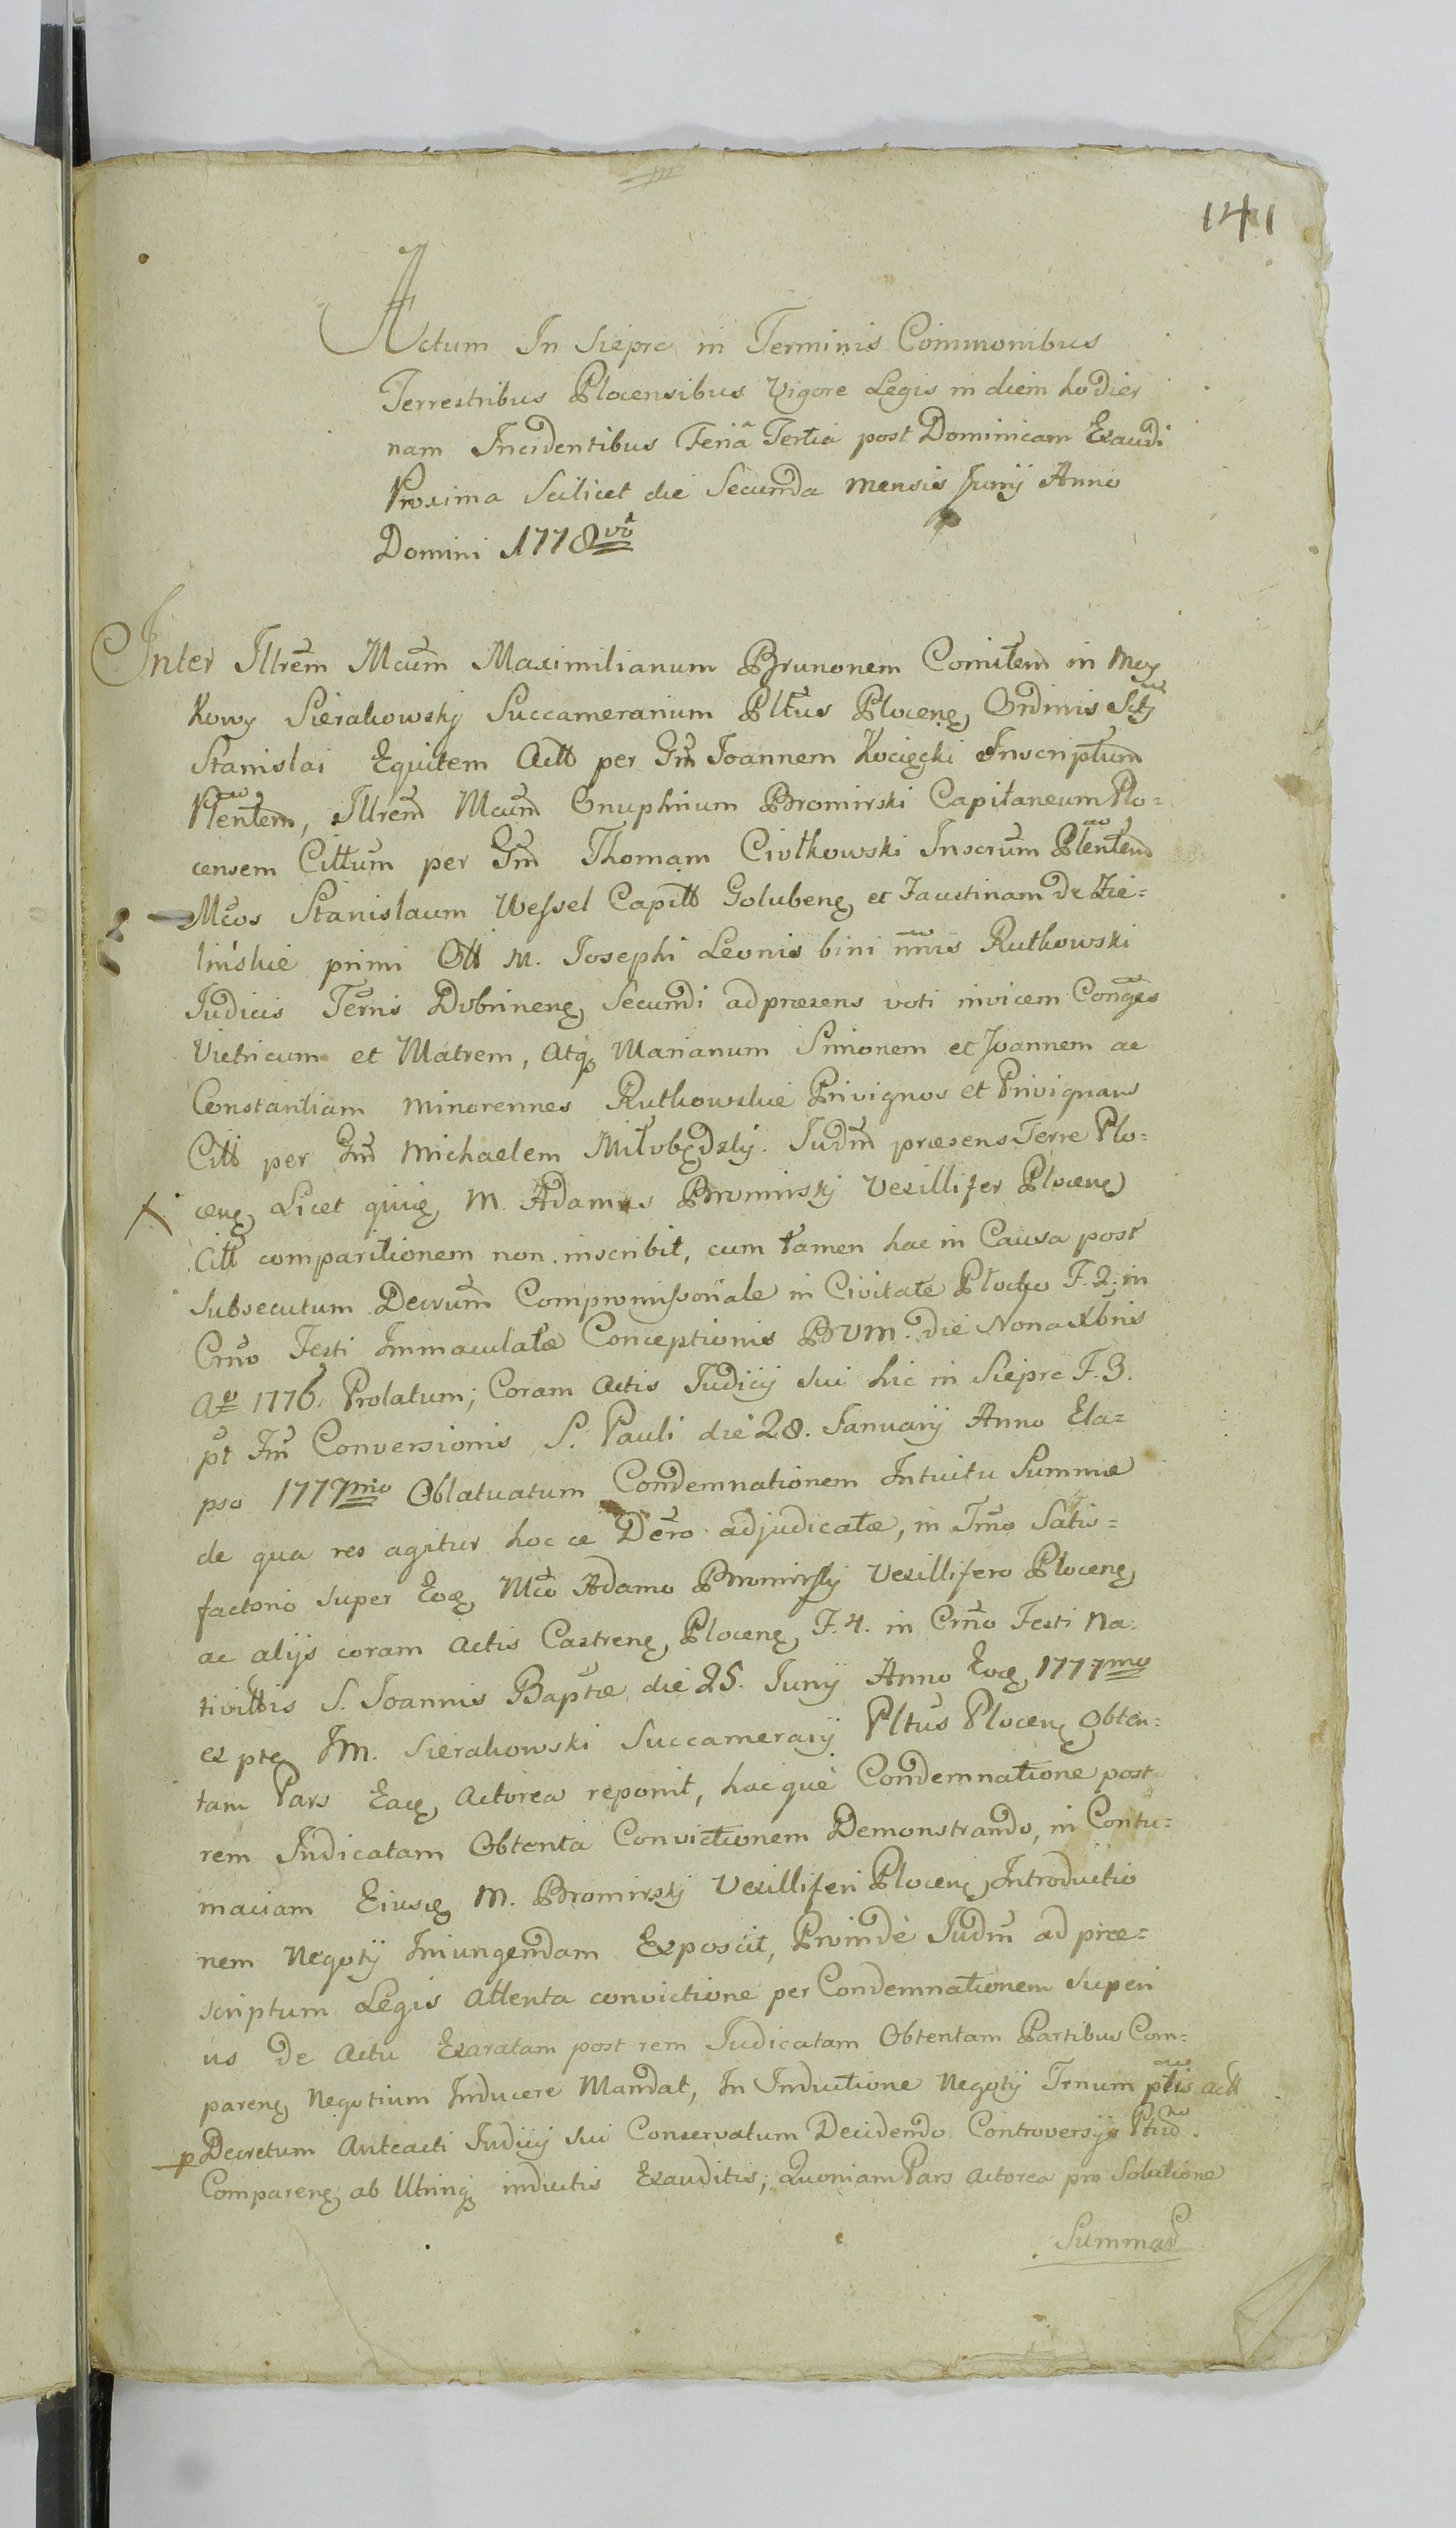 141
Actum In Siepre in Terminis Communibus
Terrestribus Plocensibus Vigore Legis in diem hodier
nam Incidentibus Feriâ Tertia post Dominicam Exaudi
Proxima Scilicet die Secunda mensis Junij Anno
Domini 1778vo
Inter Illrem Mcum Maximilianum Brunonem Comitem in Moy
kowy Sierakowsky Succamerarium Pltus Plocens, Ordinis Scti
Stanislai Equitem Actt per Gm Joannem Kocięcki Inscriptum
Pltentem, Illrem Mcum Onuphrium Bromirski Capitaneum Plo=
censem Cittum per Gm Thomam Ciołkowski Inscrum Pltentem
Mcos Stanislaum Wessel Capitt Golubens, et Faustinam de Zie=
lińskie primi Ott M. Josephi Leonis bini nnis Rutkowski
Judicis Terris Dobrinens, Secundi ad præsens voti invicem Conges
Vitricum et Matrem, Atq Marianum Simonem et Joannem ac
Constantiam minorennes Rutkowskie Privignos et Privignam
Citt per Gm Michaelem Miłobędzky. Judm præsens Terre Plo=
cens, Licet M. Adamus Bromirsky Vexillifer Plocens
Citt comparitionem non inscribit, cum tamen hac in Causa post
Subsecutum Decrum Compromissoriale in Civitate Plocko F. 2. in
Crno Festi Immaculatæ Conceptionis BVM. die Nona Xbris
Ao 1776. Prolatum; Coram Actis Judicij sui hic in Siepre F. 3.
pt Fm Conversionis S. Pauli die 28. Januarij Anno Ela=
pso 1777mo Oblatuatum Condemnationem Intuitu Summæ
de qua res agitur hoc ce Decro adjudicatæ, in Tmo Satis=
factorio super Eod, Mco Adamo Bromirsky Vexillifero Plocens,
ac alijs coram actis Castrens, Plocens, F. 4. in Crno Festi Na=
tivittis S. Joannis Baptæ die 25. Junij Anno Eod, 1777mo
ex pte JM. Sierakowski Succamerarij Pltus Plocens Obten=
tam Pars Ead, Actorea reponit, hacquè Condemnatione post
rem Judicatam Obtenta Convictionem Demonstrando, in Contu=
maciam Eiusd, M. Bromirsky Vexilliferi Plocens, Introductio
nem Negotij Iniungendam Exposcit, Proindè Judm ad præ=
scriptum Legis Attenta convictione per Condemnationem Superi
us de Actu Exaratam post rem Judicatam Obtentam Partibus Com=
parens, Negotium Inducere Mandat, In Inductione Negotij Trnum ptis Actt
p Decretum Anteacti Judicij sui Conservatum Decidendo Controversijs Ptiu.
Comparens, ab Utrinq inductis Exauditis; Quoniam Pars Actorea pro Solutione
Summæ